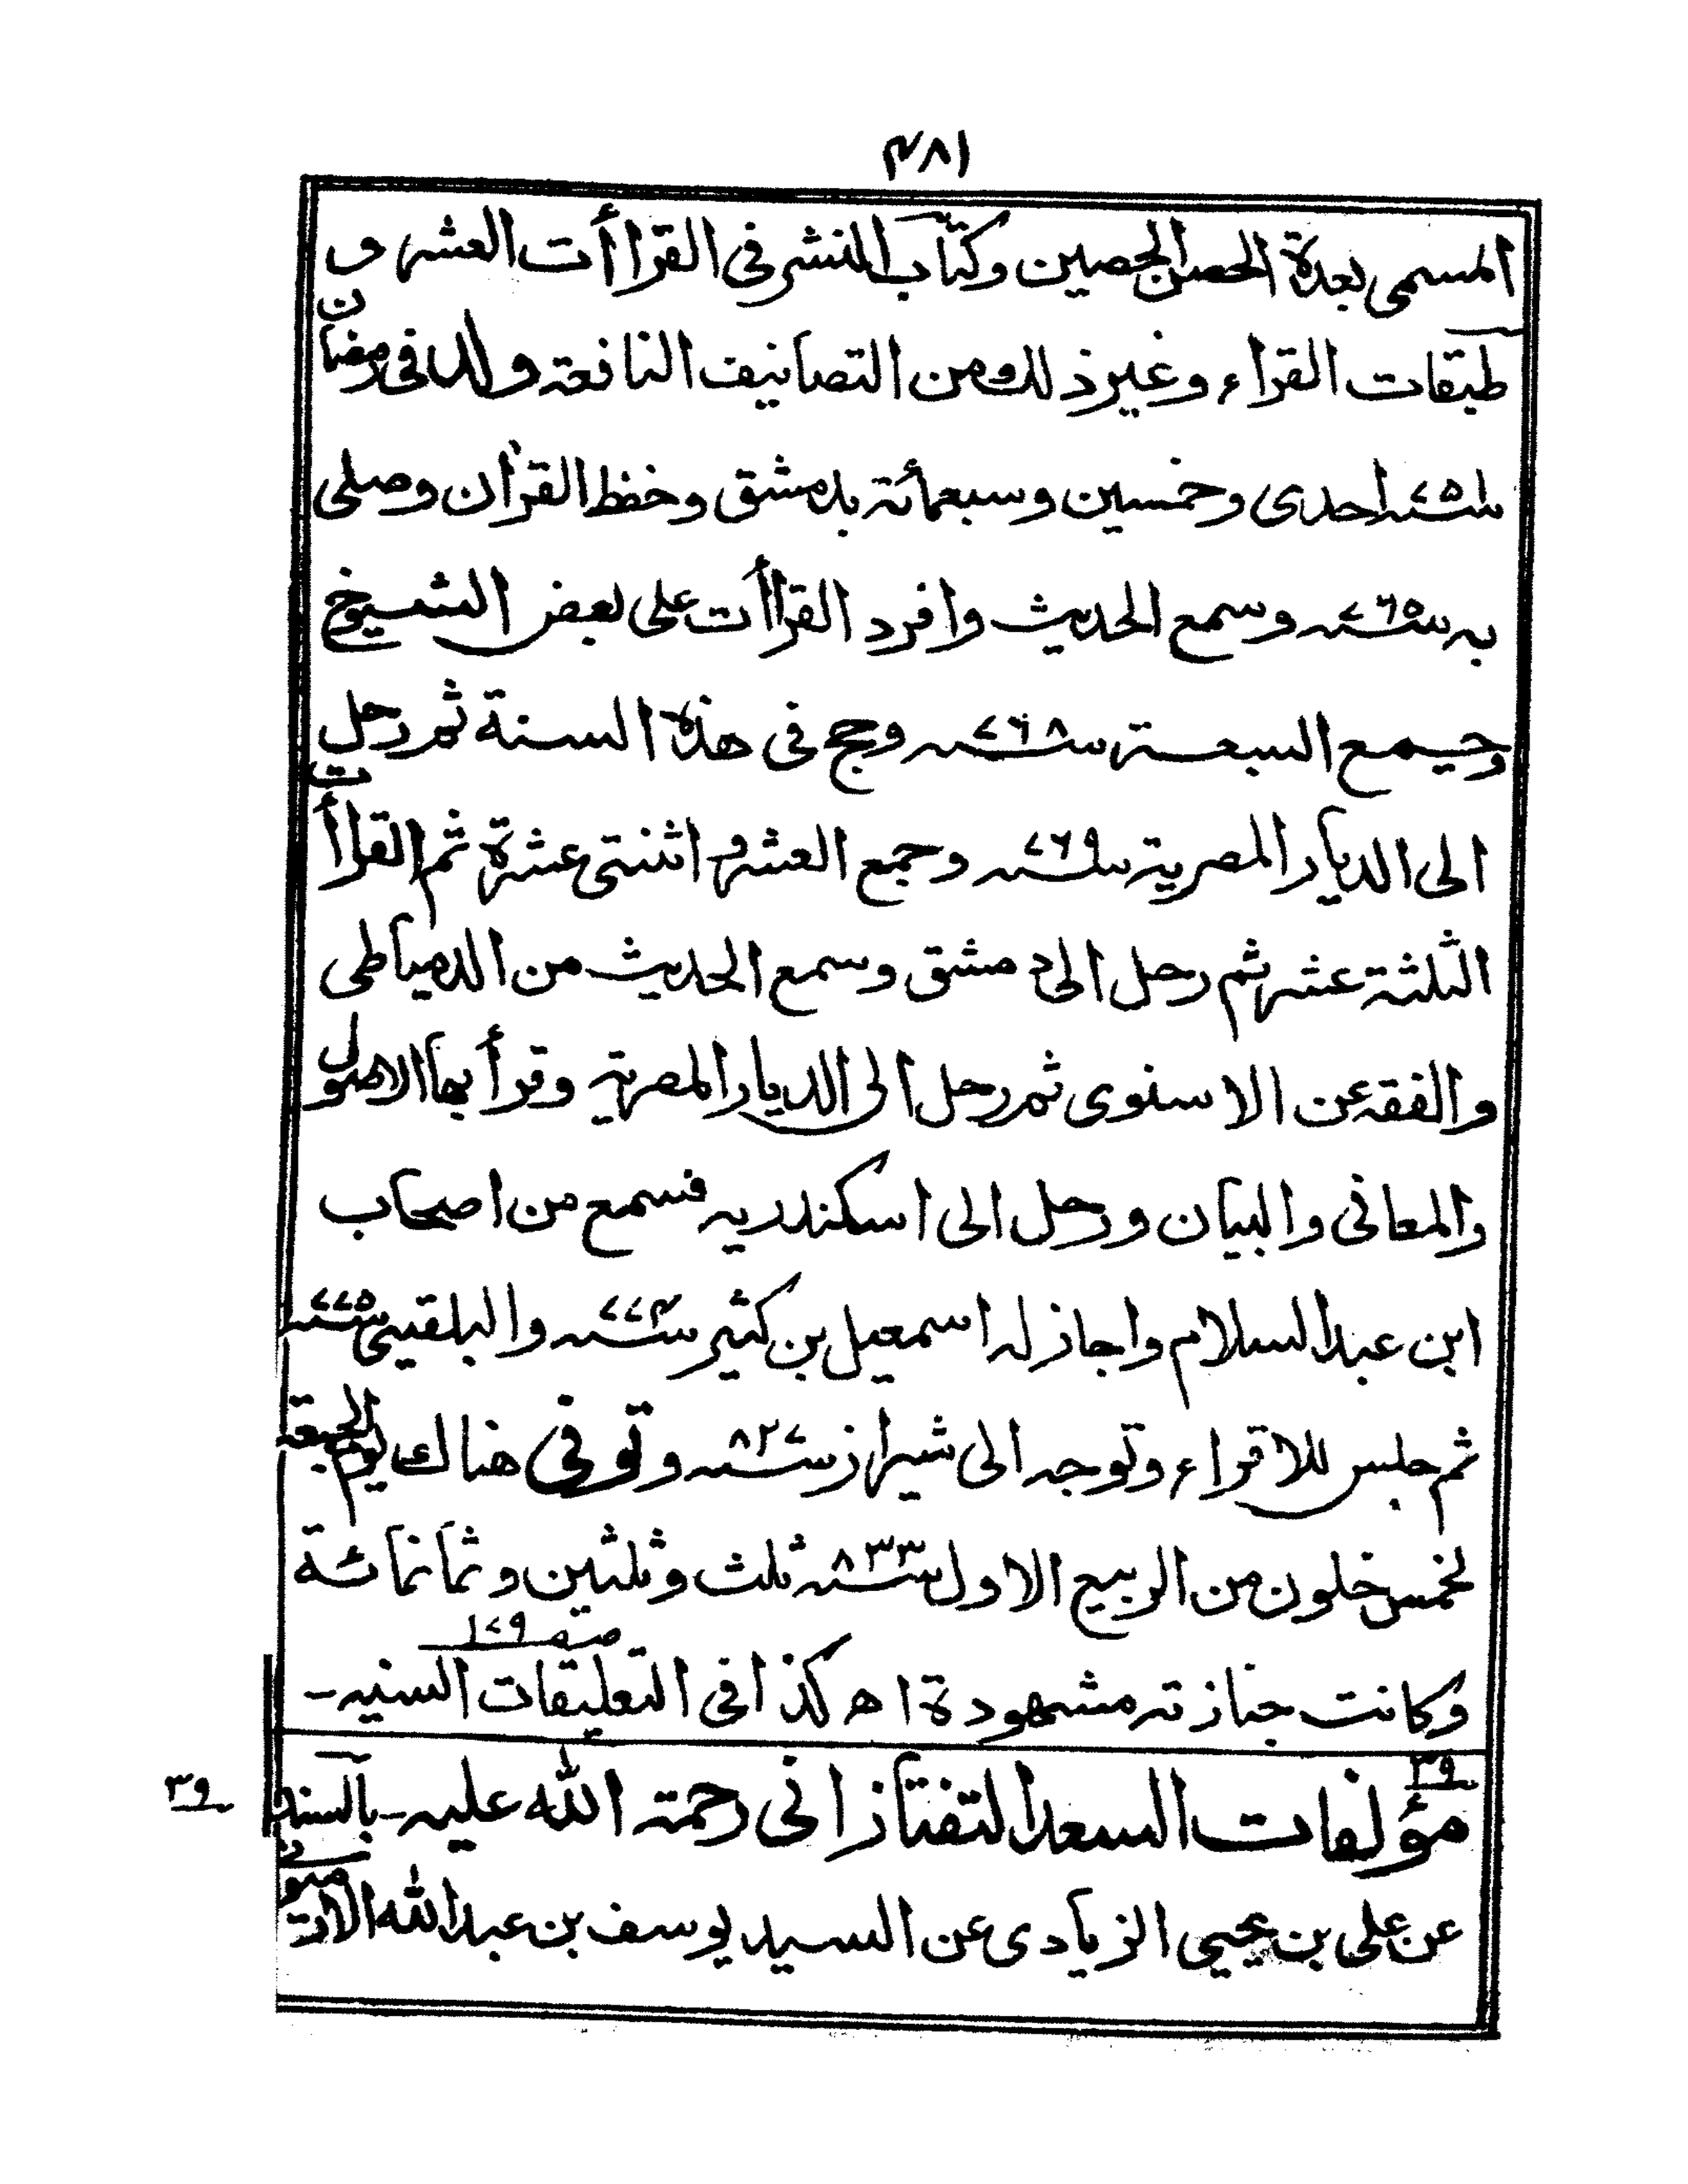 ۴۸۱
المسمى بعدة الحصن الحصين وكتاب النشر فى القراأت العشر و
طبقات القراء وغير ذلك ومن التصانيف النافعة ولد فى رمضان
سنة ۷۵۱ احدى وخمسين وسبعمائة بدمشق وحفظ القرآن وصلى
به سنة ۷۶۵ وسمع الحديث وافرد القراأت على بعض الشيوخ
وجمع السبعة سنة ۷۶۸ وحج فى هذه السنة ثم رحل
الى الديار المصرية سنة ۷۶۹ وجمع العشر و اثنتى عشرة ثم القراأت
الثلثة عشر ثم رحل الى دمشق وسمع الحديث من الدمياطى
والفقه عن الاسنوى ثم رحل الى الديار المصرية وقرأ بها الاصول
والمعانى والبيان ورحل الى اسكندريه فسمع من اصحاب
ابن عبد السلام واجاز له اسمعيل بن كثير سنة ۷۷۴ والبلقينى سنة ۷۷۵
ثم جلس للاقراء وتوجه الى شيراز سنة ۸۲۷ وتوفى هناك يوم الجمعة
لخمس خلون من الربيع الاول سنة ۸۳۳ ثلث وثلثين وثمانمائة
وكانت جنازته مشهودة اھ كذا فى التعليقات السنيه ـ صفه ۱۷۹
۳۹ مؤلفات السعد التفتازانى رحمة الله عليه ـ بالسند
۳۹
عن على بن يحيى الزيادى عن السيد يوسف بن عبد الله